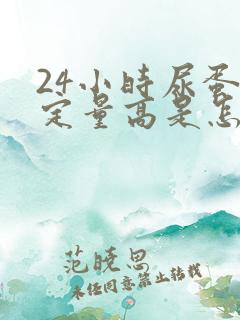 24小时尿蛋
定量高是怎
范晓思
未经同意禁止转载